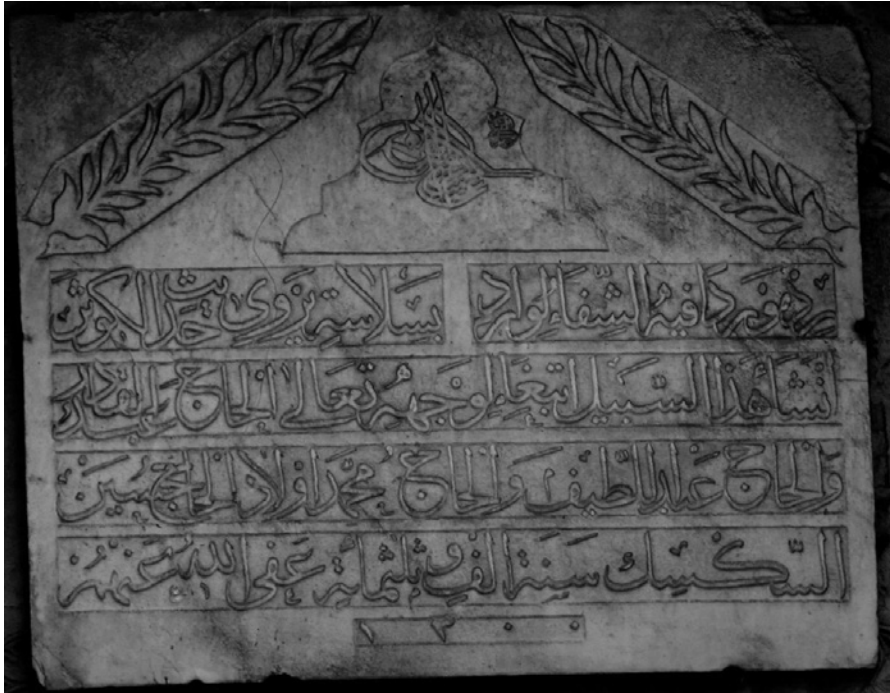 رد نهر دافيه الشفاء لوارد بسلاسة يروي حديث الكوثر
انشأ هذا السبيل ابتغاء لوجهه تعالى الحاج عبد القادر
والحاج عبد اللطيف والحاج محمد اولاد الحاج حسين
السكسك سنة الف وثلثماية عفى الله عنهن
١٣٠٠